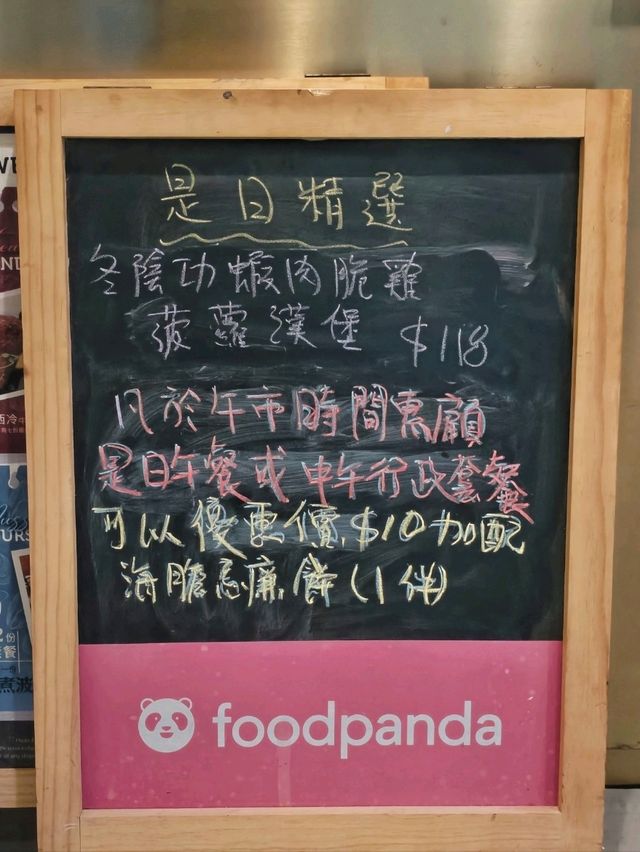 是日精選
冬陰功蝦肉脆雞
菠蘿漢堡 $118
凡於午市時間惠顧
是日午餐或中午行政套餐
可以優惠價$10加配
海膽忌廉餅(1件)
foodpanda